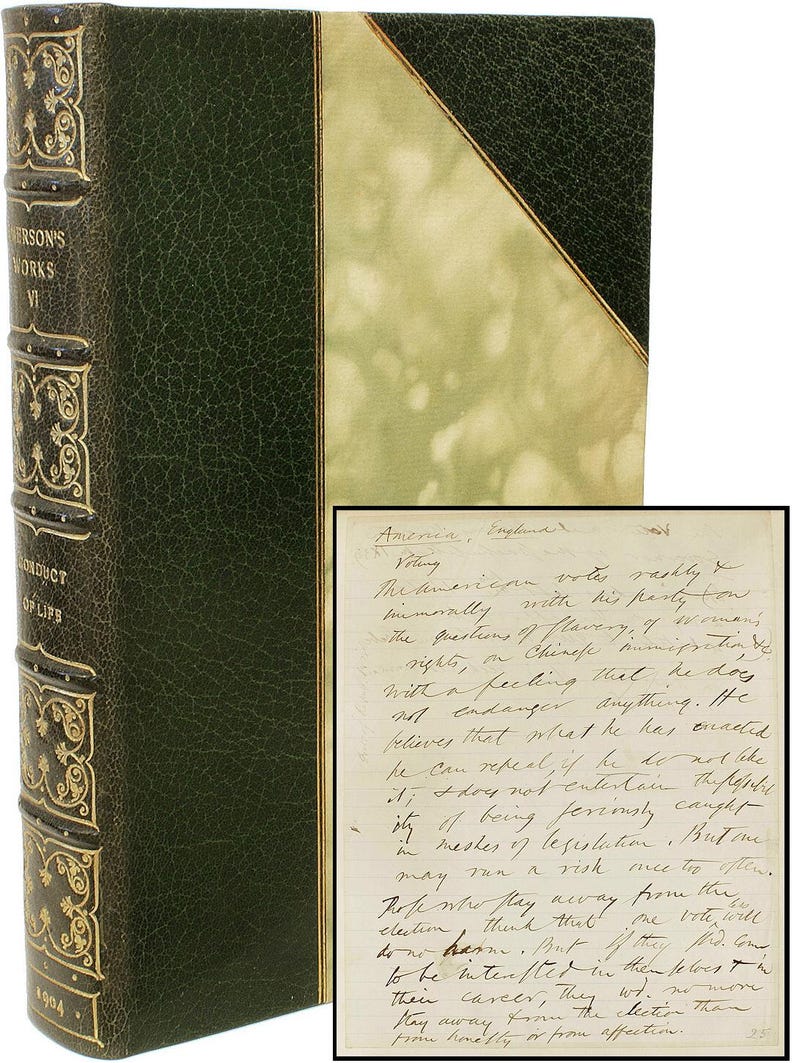 ERSON'S
WORKS
VI
CONDUCT
OF LIFE
1904
America, England
Voting
The American votes rashly &
immorally with his party (on
the questions of slavery, of woman's
rights, on Chinese immigration, &c.
with a feeling that he does
not endanger anything. He
believes that what he has enacted
he can repeal, if he do not like
it; & does not entertain the possibil
ity of being seriously caught
in meshes of legislation. But one
may run a risk once too often.
Those who stay away from the
election think that one vote will
do no harm. But if they shd. come
to be interested in themselves & in
their career, they wd. no more
stay away from the election than
from honesty or from affection.
25